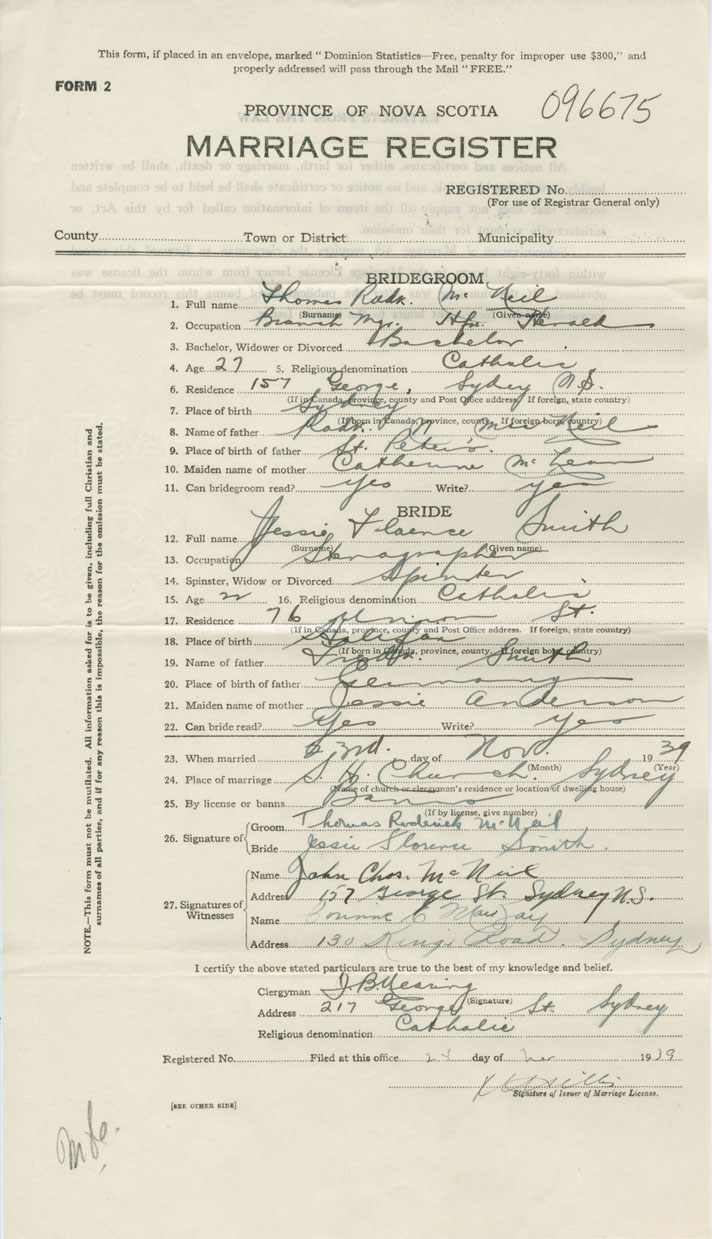 This form, if placed in an envelope, marked "Dominion Statistics—Free, penalty for improper use $300," and
properly addressed will pass through the Mail "FREE."
FORM 2
PROVINCE OF NOVA SCOTIA 096675
MARRIAGE REGISTER
REGISTERED No.
(For use of Registrar General only)
County Town or District Municipality
BRIDEGROOM
1. Full name Thomas Rodk. McNeil
(Surname) (Given name)
2. Occupation Branch Mgr. Hfx. Herald
3. Bachelor, Widower or Divorced Bachelor
4. Age 27 5. Religious denomination Catholic
6. Residence 157 George, Sydney N.S.
(If in Canada, province, county and Post Office address. If foreign, state country)
7. Place of birth Sydney
(If born in Canada, province, county. If foreign born, country)
8. Name of father Rodk. McNeil
9. Place of birth of father St. Peter's
10. Maiden name of mother Catherine McLean
11. Can bridegroom read? Yes Write? yes
BRIDE
12. Full name Jessie Florence Smith
(Surname) (Given name)
13. Occupation Stenographer
14. Spinster, Widow or Divorced Spinster
15. Age 16. Religious denomination Catholic
17. Residence 76 St.
(If in Canada, province, county and Post Office address. If foreign, state country)
18. Place of birth Halifax
(If born in Canada, province, county. If foreign born, country)
19. Name of father Fredk. Smith
20. Place of birth of father Germany
21. Maiden name of mother Jessie Anderson
22. Can bride read? Yes Write? Yes
23. When married 23rd. day of Nov. 1939
(Month) (Year)
24. Place of marriage S. H. Church. Sydney
(Name of church or clergyman's residence or location of dwelling house)
25. By license or banns Banns
(If by license, give number)
26. Signature of
Groom Thomas Roderick McNeil
Bride Jessie Florence Smith.
27. Signatures of Witnesses
Name John Chas. McNeil
Address 157 George St. Sydney N.S.
Name
Address 130 Kings Road. Sydney
I certify the above stated particulars are true to the best of my knowledge and belief.
Clergyman
(Signature)
Address 217 George St. Sydney
Religious denomination Catholic
Registered No. Filed at this office 24 day of Nov 1939
Signature of Issuer of Marriage License.
[SEE OTHER SIDE]
NOTE.—This form must not be mutilated. All information asked for is to be given, including full Christian and
surnames of all parties, and if for any reason this is impossible, the reason for the omission must be stated.